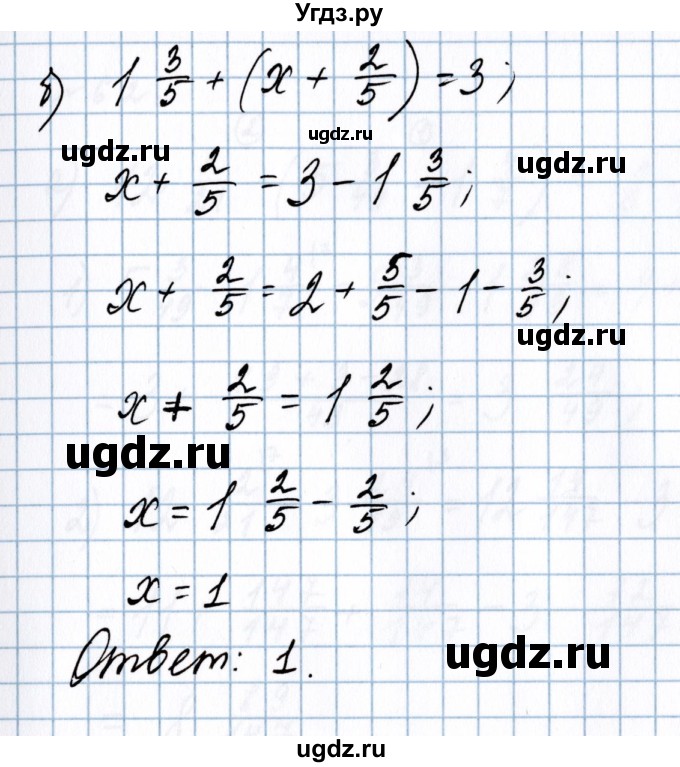 Угдз.ру
б) 1 3/5 + (x + 2/5) = 3;
ugdz.ru ugdz.ru ugdz.ru
x + 2/5 = 3 - 1 3/5;
x + 2/5 = 2 + 5/5 - 1 - 3/5;
ugdz.ru
x + 2/5 = 1 2/5;
ugdz.ru
x = 1 2/5 - 2/5;
x = 1
Ответ: 1.
ugdz.ru
ugdz.ru